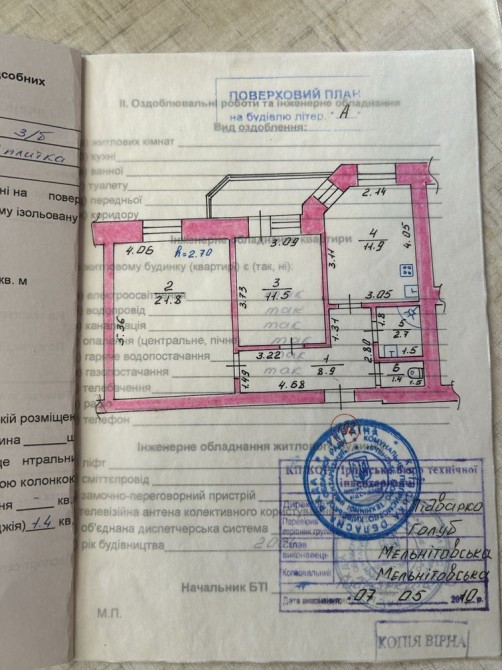 дсобних
3/5
плитка
ні на повер
му ізольовану
кв. м
кій розміщен
ина
ще нтральни
ою колонкою
ння кв.
джія) 1.4 кв.
ПОВЕРХОВИЙ ПЛАН
на будівлю літер. "А"
ІІ. Оздоблювальні роботи та інженерне обладнання
Вид оздоблення:
житлових кімнат
кухні
ванної
туалету
передньої
коридору
Інженерне обладнання квартири
житловому будинку (квартирі) є (так, ні):
електроосвітлення
водопровід так
каналізація так
опалення (центральне, пічне) так
гаряче водопостачання
газопостачання так
телебачення
телефон
2.14
4.06
h=2.70
3.09
4
11.9
4.05
3.11
2
21.8
3
11.5
3.05
5.36
3.73
1.31
1.8
5
2.7
1.5
3.22
1
8.9
2.80
1.49
4.68
6
1.4
1.5
Інженерне обладнання житлового будинку
ліфт
сміттєпровід
замочно-переговорний пристрій
телевізійна антена колективного користування
об'єднана диспетчерська система
рік будівництва
Начальник БТІ
М.П.
УКРАЇНА
технічної
інвентаризації
Підосірко
Голуб
Виконавець
Мельнітовська
Копіювальник
Мельнітовська
Дата виконання 07 05 2010
КОПІЯ ВІРНА